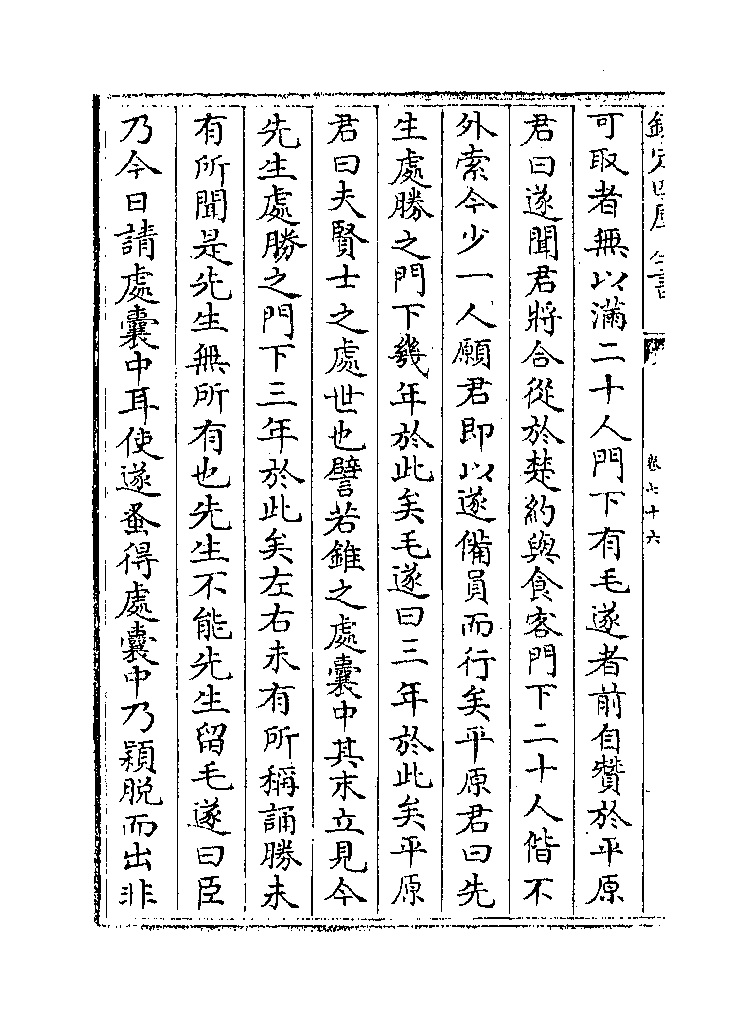 欽定四庫全書
卷七十六
可取者無以滿二十人門下有毛遂者前自贊於平原
君曰遂聞君將合從於楚約與食客門下二十人偕不
外索今少一人願君即以遂備員而行矣平原君曰先
生處勝之門下幾年於此矣毛遂曰三年於此矣平原
君曰夫賢士之處世也譬若錐之處囊中其末立見今
先生處勝之門下三年於此矣左右未有所稱誦勝未
有所聞是先生無所有也先生不能先生留毛遂曰臣
乃今日請處囊中耳使遂蚤得處囊中乃穎脫而出非